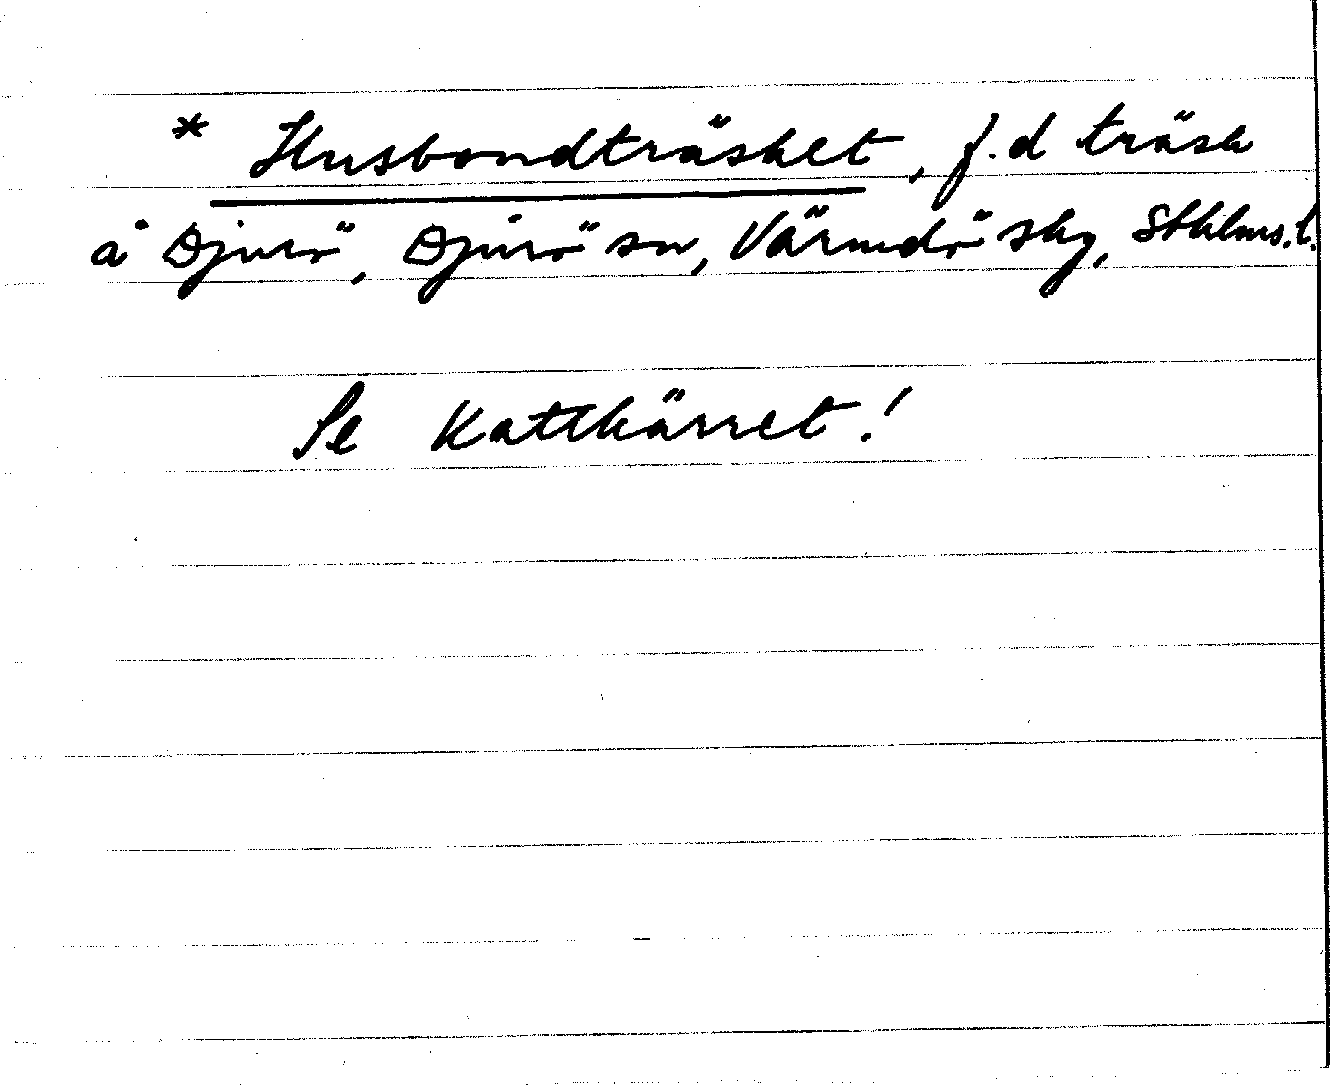 * Husbondträsket, f.d träsk
å Djurö, Djurö sn, Värmdö skg, Sthlms. l.
Se Kattkärret!